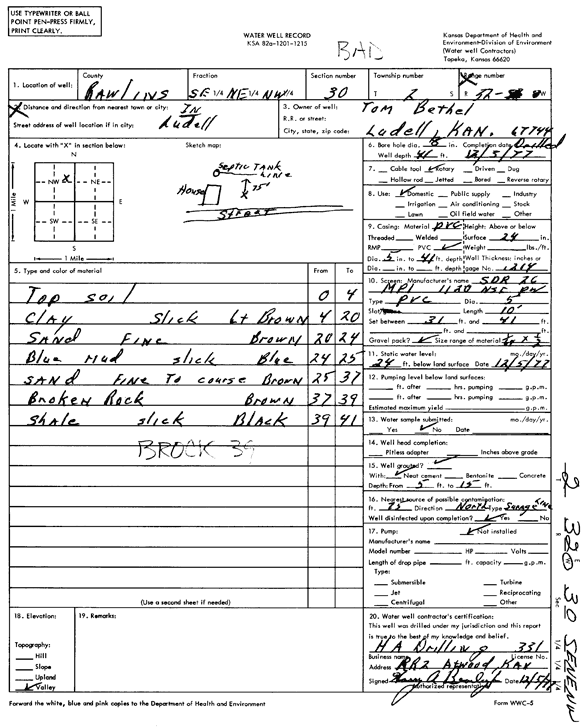 USE TYPEWRITER OR BALL
POINT PEN-PRESS FIRMLY,
PRINT CLEARLY.
WATER WELL RECORD
KSA 82a-1201-1215
Kansas Department of Health and
Environment-Division of Environment
(Water well Contractors)
Topeka, Kansas 66620
BAD
1. Location of well: County Rawlins Fraction SE 1/4 NE 1/4 NW 1/4 Section number 30 Township number T 2 S Range number R 32 W
2. Distance and direction from nearest town or city: IN
Street address of well location if in city: Ludell
3. Owner of well: Tom Bethel
R.R. or street:
City, state, zip code: Ludell, KAN. 67744
4. Locate with "X" in section below:
N
NW X NE
W E
SW SE
S
1 Mile
1 Mile
Sketch map:
SEPTIC TANK
LINE
House
75'
X
STREET
5. Type and color of material From To
Top soil 0 4
Clay Slick Lt Brown 4 20
SAND Fine Brown 20 24
Blue Mud slick Blue 24 25
SAND FINE To course Brown 25 37
Broken Rock Brown 37 39
Shale slick Black 39 41
BROCK 39
(Use a second sheet if needed)
6. Bore hole dia. 8 in. Completion date Drilled
Well depth 41 ft. 12/5/77
7. Cable tool ✓ Rotary Driven Dug
Hollow rod Jetted Bored Reverse rotary
8. Use: ✓ Domestic Public supply Industry
Irrigation Air conditioning Stock
Lawn Oil field water Other
9. Casing: Material PVC Height: Above or below
Threaded Welded Surface 24 in.
RMP PVC ✓ Weight lbs./ft.
Dia. 5 in. to 41 ft. depth Wall Thickness: inches or
Dia. in. to ft. depth gage No. .214
10. Screen: Manufacturer's name SDR 26
MPI 1120 NSF PW
Type PVC Dia. 5
Slot Length 10'
Set between 31 ft. and 41 ft.
ft. and ft.
Gravel pack? ✓ Size range of material
11. Static water level: mo./day/yr.
24 ft. below land surface Date 12/5/77
12. Pumping level below land surfaces:
ft. after hrs. pumping g.p.m.
ft. after hrs. pumping g.p.m.
Estimated maximum yield g.p.m.
13. Water sample submitted: mo./day/yr.
Yes ✓ No Date
14. Well head completion:
Pitless adapter Inches above grade
15. Well grouted? ✓
With: ✓ Neat cement Bentonite Concrete
Depth: From 5 ft. to 15 ft.
16. Nearest source of possible contamination:
ft. 75 Direction North Type Sewage Line
Well disinfected upon completion? ✓ Yes No
17. Pump: ✓ Not installed
Manufacturer's name
Model number HP Volts
Length of drop pipe ft. capacity g.p.m.
Type:
Submersible Turbine
Jet Reciprocating
Centrifugal Other
18. Elevation:
Topography:
Hill
Slope
Upland
✓ Valley
19. Remarks:
20. Water well contractor's certification:
This well was drilled under my jurisdiction and this report
is true to the best of my knowledge and belief.
HA Drilling 331
Business name License No.
Address RR2 Atwood, KAN
Signed Date 12/5/77
Authorized representative
Forward the white, blue and pink copies to the Department of Health and Environment
Form WWC-5
T 2 R 32 E W Sec 30 1/4 1/4 1/4 SENENW